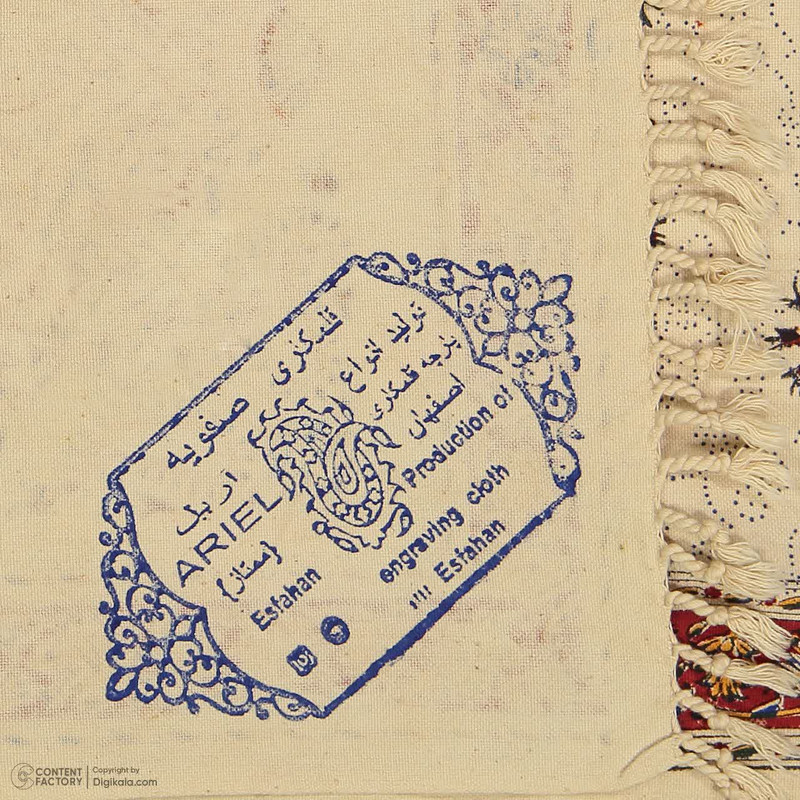 قلمکاری
صفویه
اریل
ARIEL
{ممتاز}
Esfahan
تولید انواع
پارچه قلمکاری
اصفهان
Production of
engraving cloth
Esfahan
CONTENT FACTORY
Copyright by
Digikala.com